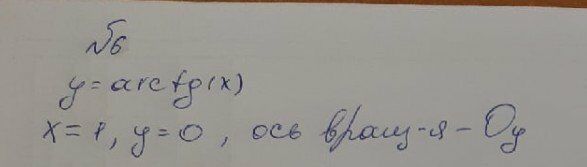 №6
y = arctg(x)
x = 1, y = 0, ось вращ-я - Oy